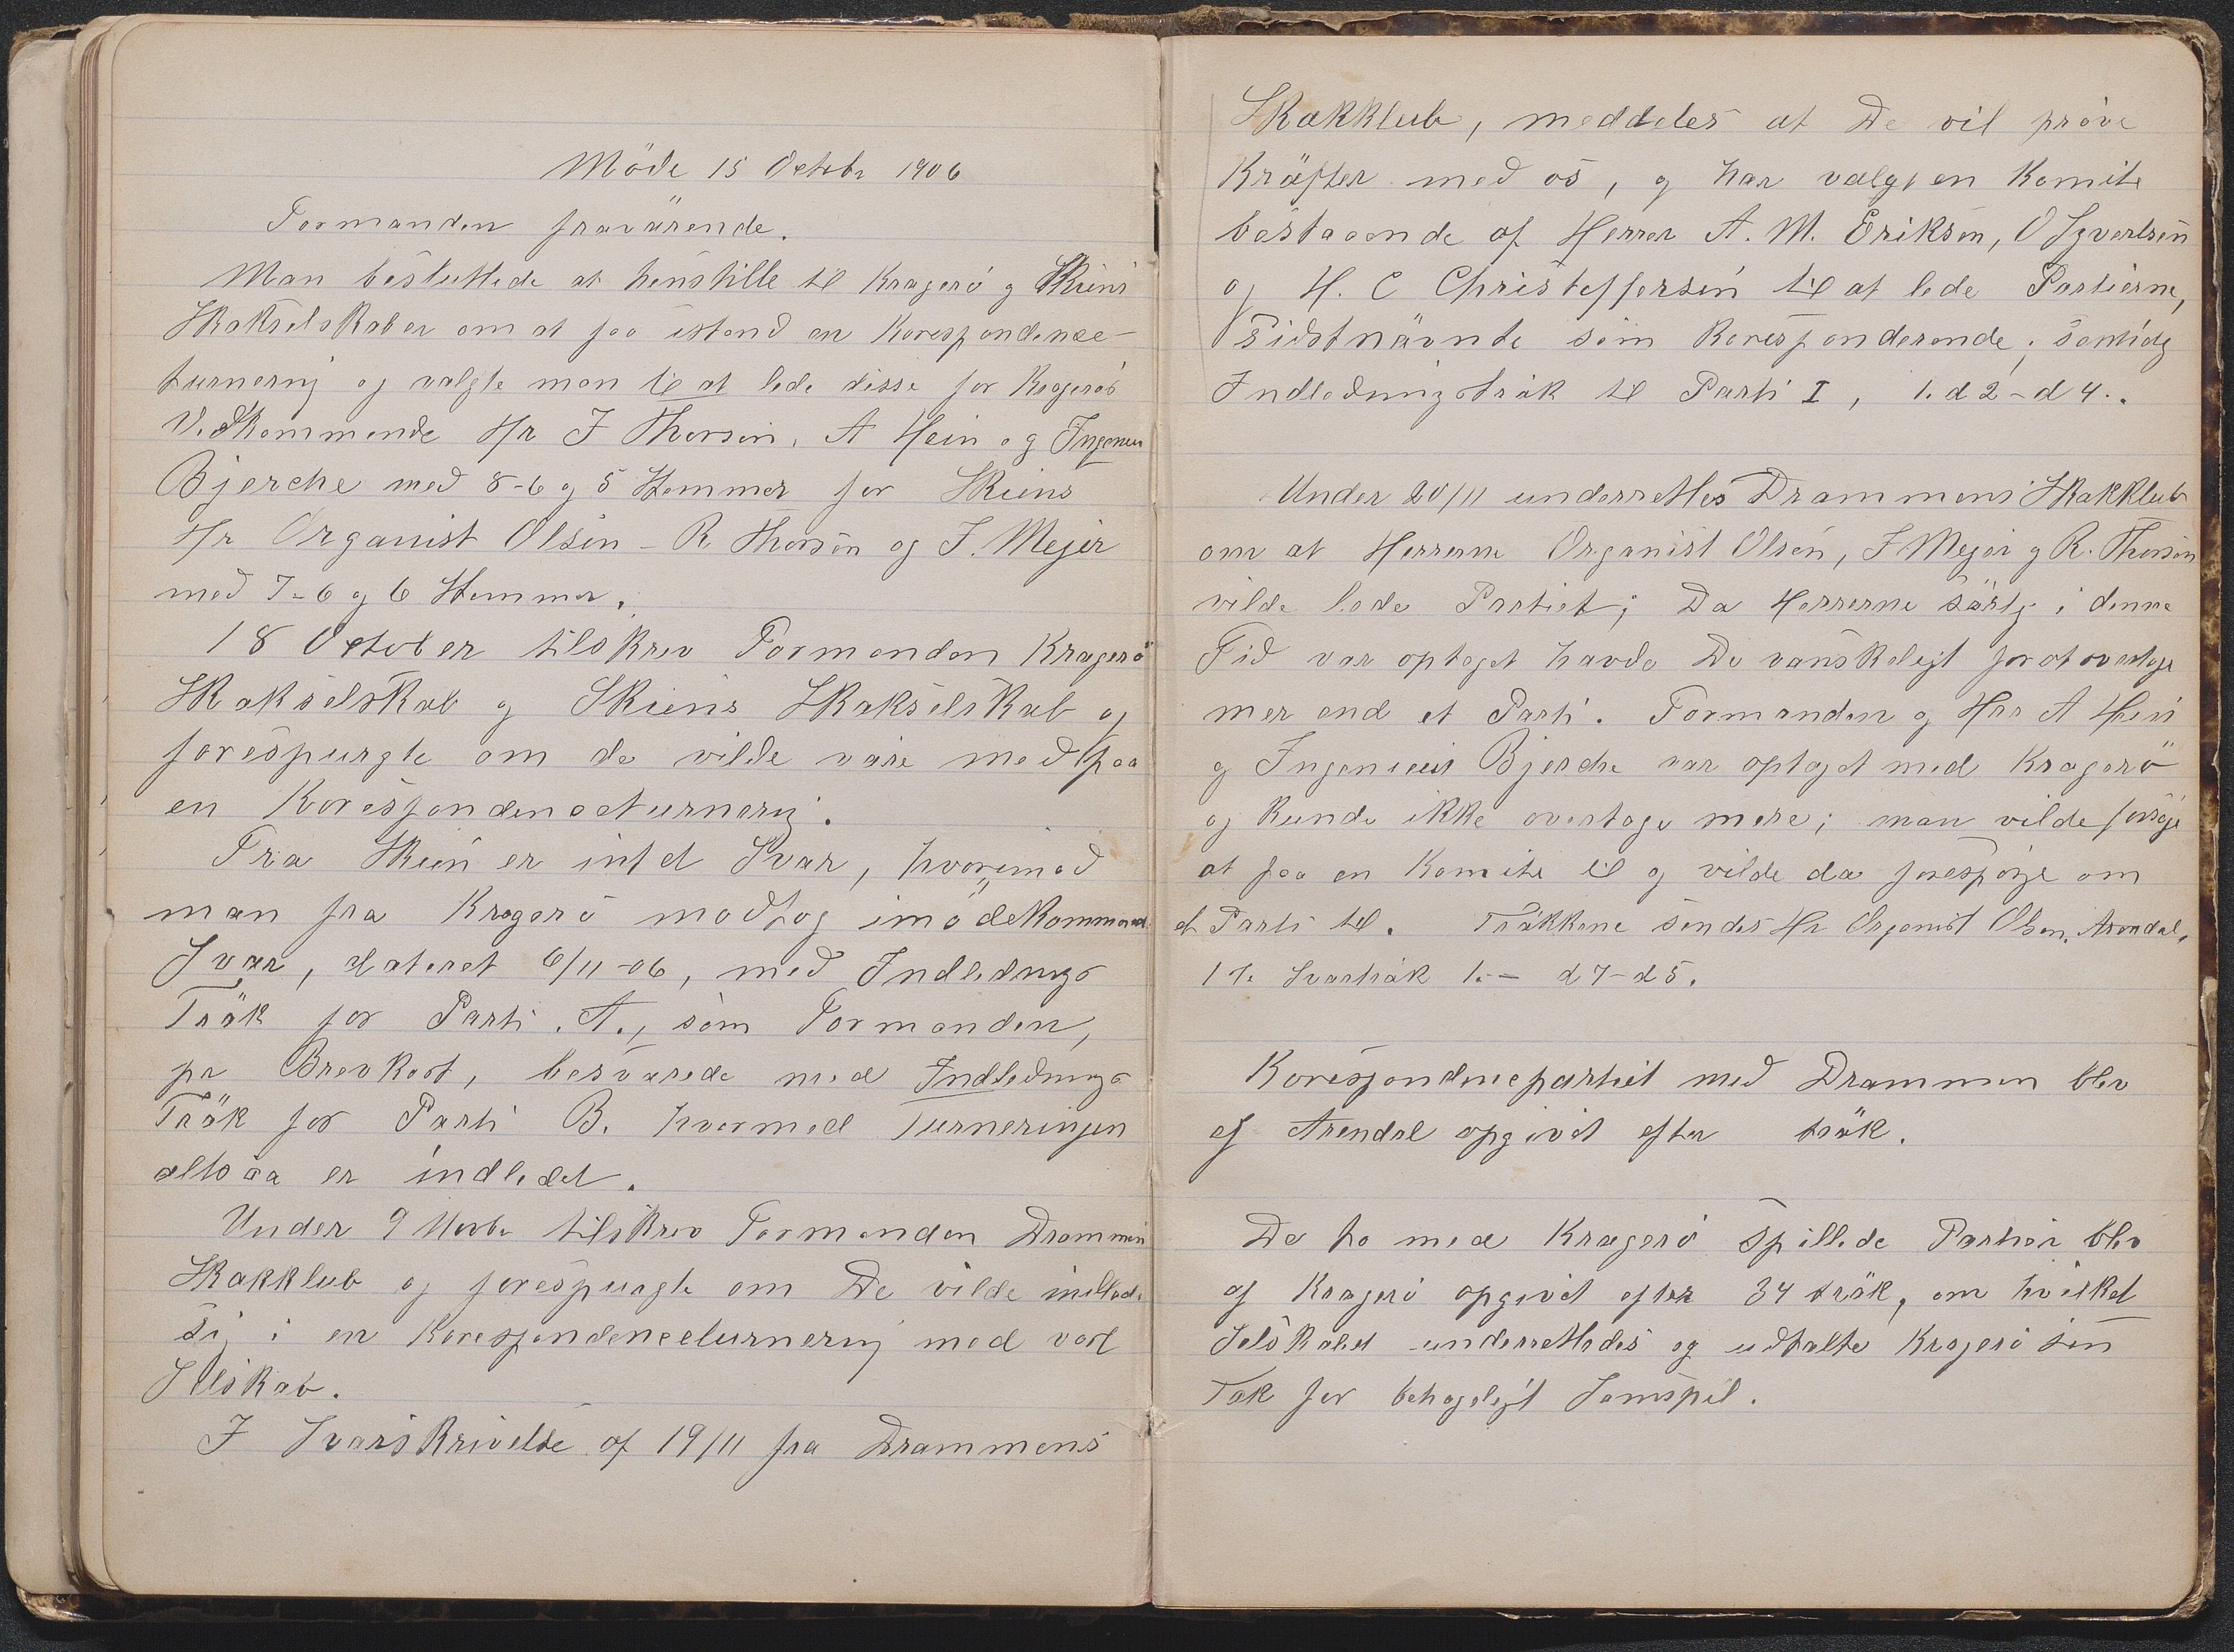 Möde 15 Octobr 1906
Formanden fraværende.
Man besluttede at henstille til Kragerö og Skiens
Skakselskaber om at faa istand en Korespondence-
turnering og valgte man til at lede disse for Kragerös
Vedkommende Hr J Thorsen, A Hein og Ingeniør
Bjerche med 8-6 og 5 Stemmer for Skiens
Hr Organist Olsen - R Thorsen og J. Mejer
med 7-6 og 6 Stemmer.
18 October tilskrev Formanden Kragerö
Skakselskab og Skiens Skakselskab og
forespurgte om de vilde väre med paa
en Korespondenceturnering.
Fra Skien er intet Svar, hvorimod
man fra Kragerö modtog imödekommend
Svar, dateret 6/11-06, med Indlednings
Träk for Parti A., som Formanden,
pr Brevkort, besvarede med Indlednings
Träk for Parti B. hvormed Turneringen
altsaa er indledet.
Under 9 Novbr tilskrev Formanden Drammens
Skakklub og forespurgte om De vilde indlade
sig i en Korespondenceturnering med vort
Selskab.
I Svarskrivelse af 19/11 fra Drammens
Skakklub, meddeles at De vil pröve
Kräfter med os, og har valgt en Komite
bestaaende af Herrer A. M. Eriksen, O Syvertsen
og H. C Christoffersen til at lede Partierne,
Sidstnävnte som Korresponderende; samtidig
Indledningsträk til Parti I, 1. d2-d4.
Under 20/11 underrettes Drammens Skakklub
om at Herrerne Organist Olsen, J Mejer og R. Thorsen
vilde lede Partiet; Da Herrerne särlig i denne
Tid var optaget havde De vanskeligt for at overtage
mer end et Parti. Formanden og Hrr A Hein
og Ingeniør Bjerche var optaget med Kragerö
og kunde ikke overtage mere; man vilde forsöge
at faa en Komite til og vilde da forespörge om
et Parti til. Träkkene sendes Hr Organist Olsen, Arendal.
17. Svarträk 1.- d7-d5.
Korespondencepartiet med Drammen blev
af Arendal opgivet efter träk.
De to med Kragerö spillede Partier blev
af Kragerö opgivet efter 34 träk, om hvilket
Selskabet underrettedes og udtalte Kragerö sin
Tak for behageligt Samspil.